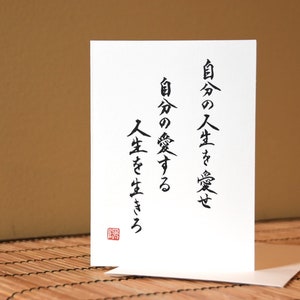 自分の人生を愛せ
自分の愛する
人生を生きろ